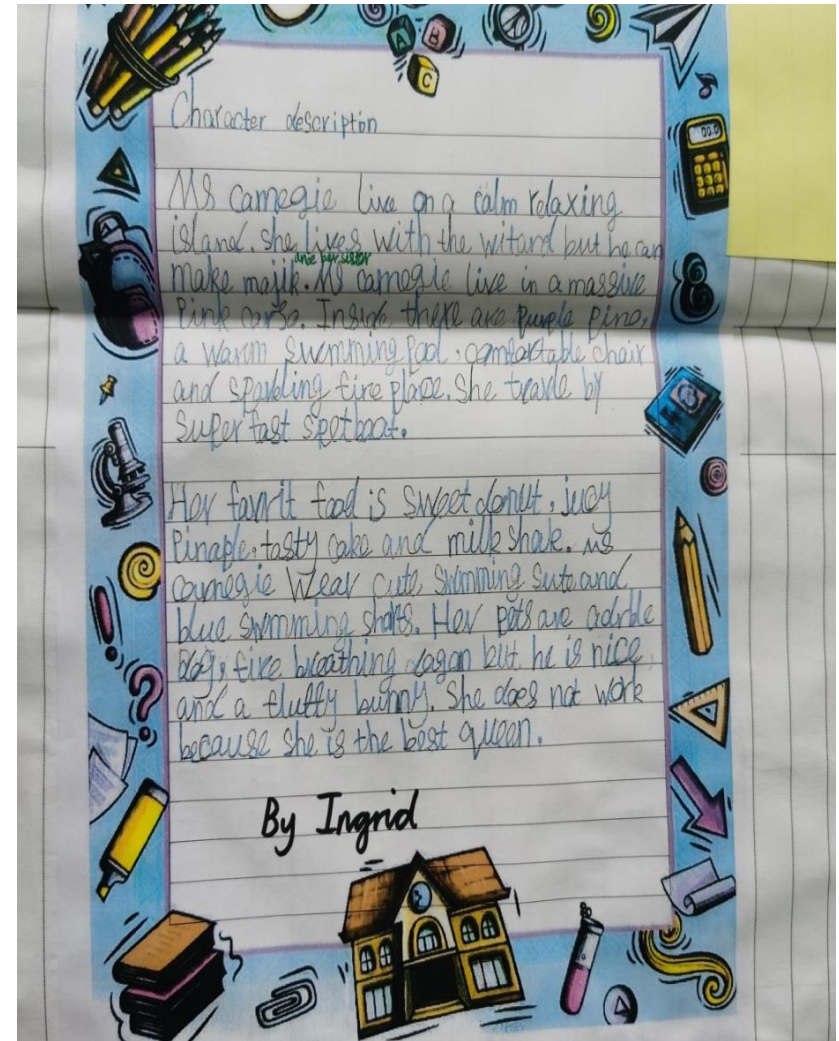 A B
C
00.0
Character description
Ms carnegie live on a calm relaxing
island. she lives with the witard but he can
and her sister
make majik. Ms carnegie live in a massive
Pink carso. Inside, there are Purple Pino,
a warm swimming Pool, comfortable chair
and sparkling fire place. She travle by
Super fast spetboat.
Her favrit food is sweet donut, jucy
Pinaple, tasty cake and milk shake. Ms
carnegie wear cute swimming sute and
blue swimming shorts. Her pets are adrble
dog, fire breathing dagan but he is nice,
and a fluffy bunny. She does not work
because she is the best queen.
By Ingrid